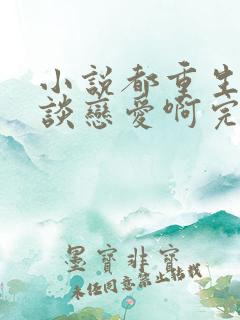 小說都重生
談戀愛啊完
墨寶非寶
未經同意禁止轉載